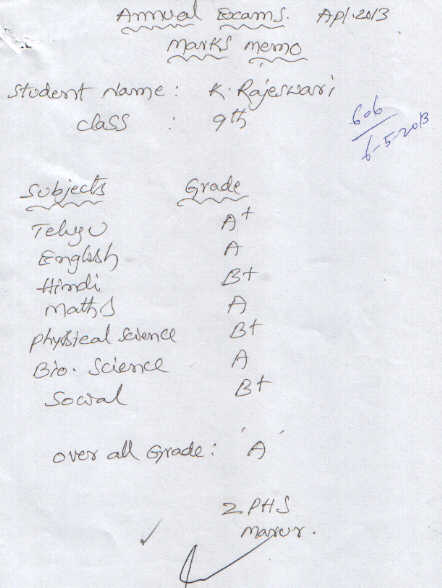 Annual Exams. Apl. 2013
Marks Memo
Student Name : K. Rajeswari
Class : 9th
606
6-5-2013
Subjects Grade
Telugu A+
English A
Hindi B+
Maths A
Physical Science B+
Bio. Science A
Social B+
Over all Grade : 'A'
ZPHS
Marur.